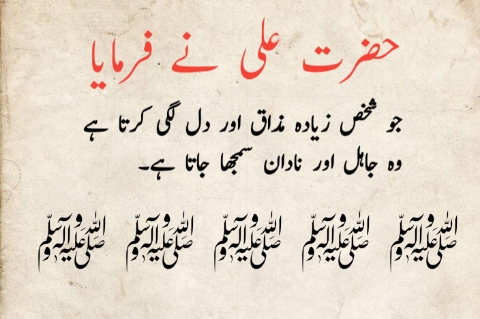 حضرت علی نے فرمایا
جو شخص زیادہ مذاق اور دل لگی کرتا ہے
وہ جاہل اور نادان سمجھا جاتا ہے۔
صلی اللہ علیہ وآلہ وسلم صلی اللہ علیہ وآلہ وسلم صلی اللہ علیہ وآلہ وسلم صلی اللہ علیہ وآلہ وسلم صلی اللہ علیہ وآلہ وسلم